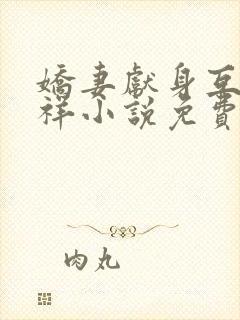 嬌妻獻身互
祥小說免費
肉丸